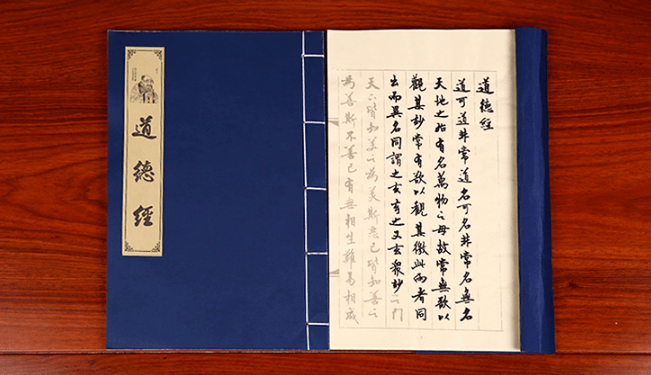 道德經
道德經
道可道非常道名可名非常名無名
天地之始有名萬物之母故常無欲以
觀其妙常有欲以觀其徼此兩者同
出而異名同謂之玄玄之又玄衆妙之门
天下皆知美之為美斯惡已皆知善之
為善斯不善已有無相生難易相成